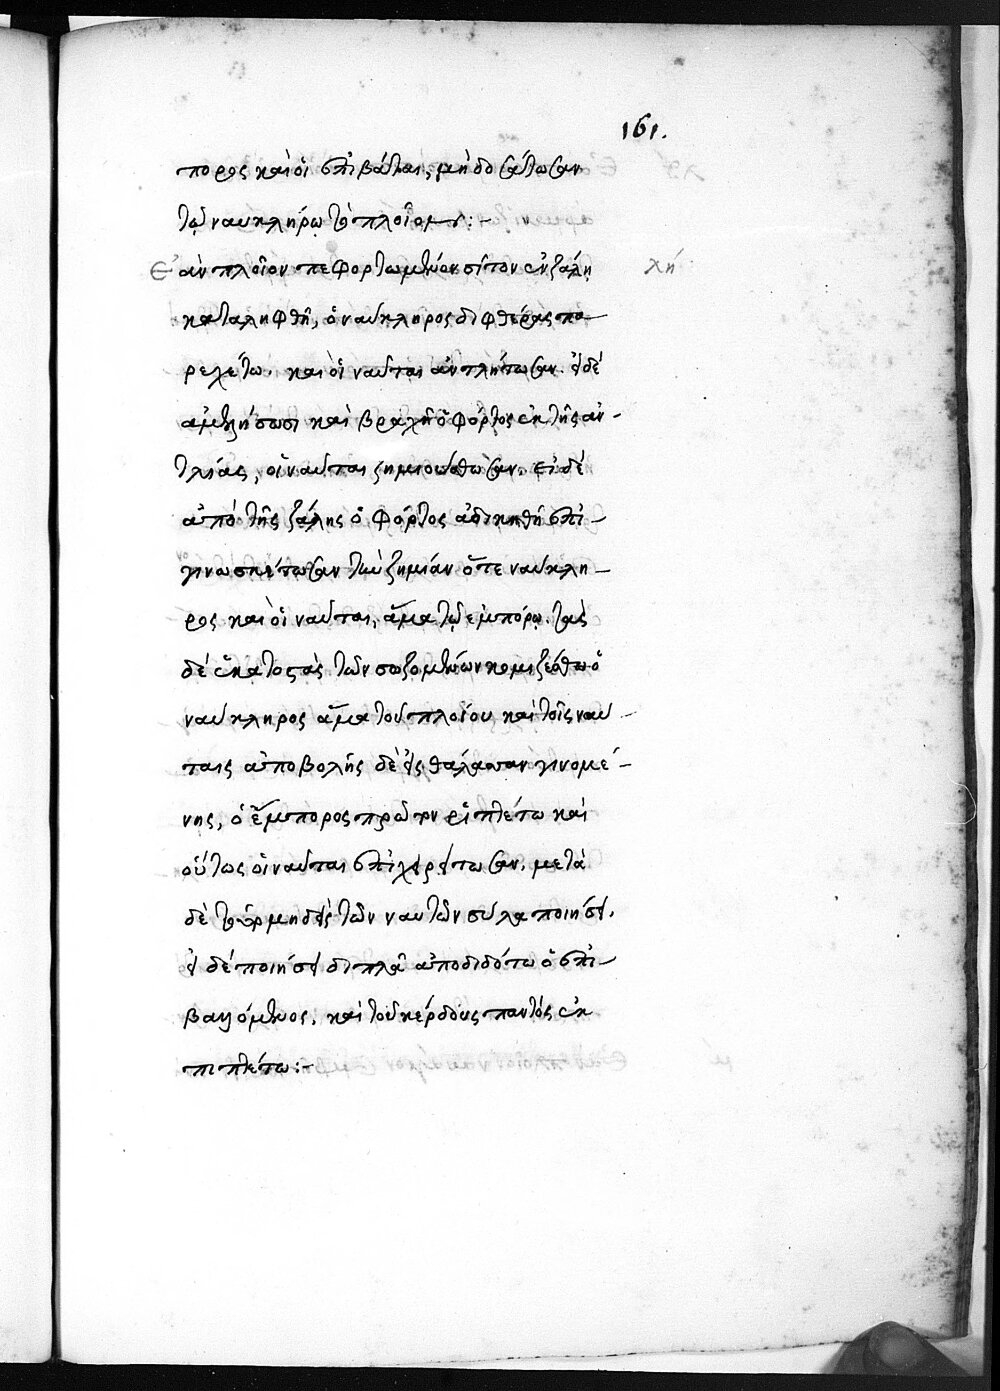 161.
πορος καὶ οἱ ἐπιβάται, μὴ δοσάτωσαν
τῷ ναυκλήρῳ τὸ πλοῖον
Ἐὰν πλοῖον πεφορτωμένον σῖτον ἐν ζάλῃ
λη΄
καταληφθῆ, ὁ ναύκληρος διφθέρας πα–
ρεχέτω. καὶ οἱ ναῦται ἀντλήτωσαν. εἰ δέ
ἀμελήσωσι καὶ βραχῆ ὁ φόρτος ἐκ τῆς ἀν–
τλίας, οἱ ναῦται ζημιούσθωσαν. εἰ δέ
ἀπό τῆς ζάλης ὁ φόρτος ἀδικηθῆ ἐπι–
γινωσκέτωσαν τὴν ζημίαν ὅτε ναύκλη–
ρος καὶ οἱ ναῦται, ἅμα τῷ ἐμπόρῳ. τὰς
δέ ἑκατοστὰς τῶν σωζομένων κομιζέσθω ὁ
ναύκληρος ἅμα τοῦ πλοίου καὶ τοῖς ναύ–
ταις ἀποβολῆς δὲ εἰς θάλασσαν γινομέ–
νης, ὁ ἔμπορος πρῶτον ῥιπτέτω καὶ
οὕτως οἱ ναῦται ἐπιχειρείτωσαν. μετὰ
δὲ τῶν ναυτῶν σύλα ποιήσει.
εἰ δέ ποιήσει διπλᾶ ἀποδιδότω ὁ ἐπι–
βαλλόμενος. καὶ τοῦ κέρδους παντός ἐκ
πιπτέτω:–